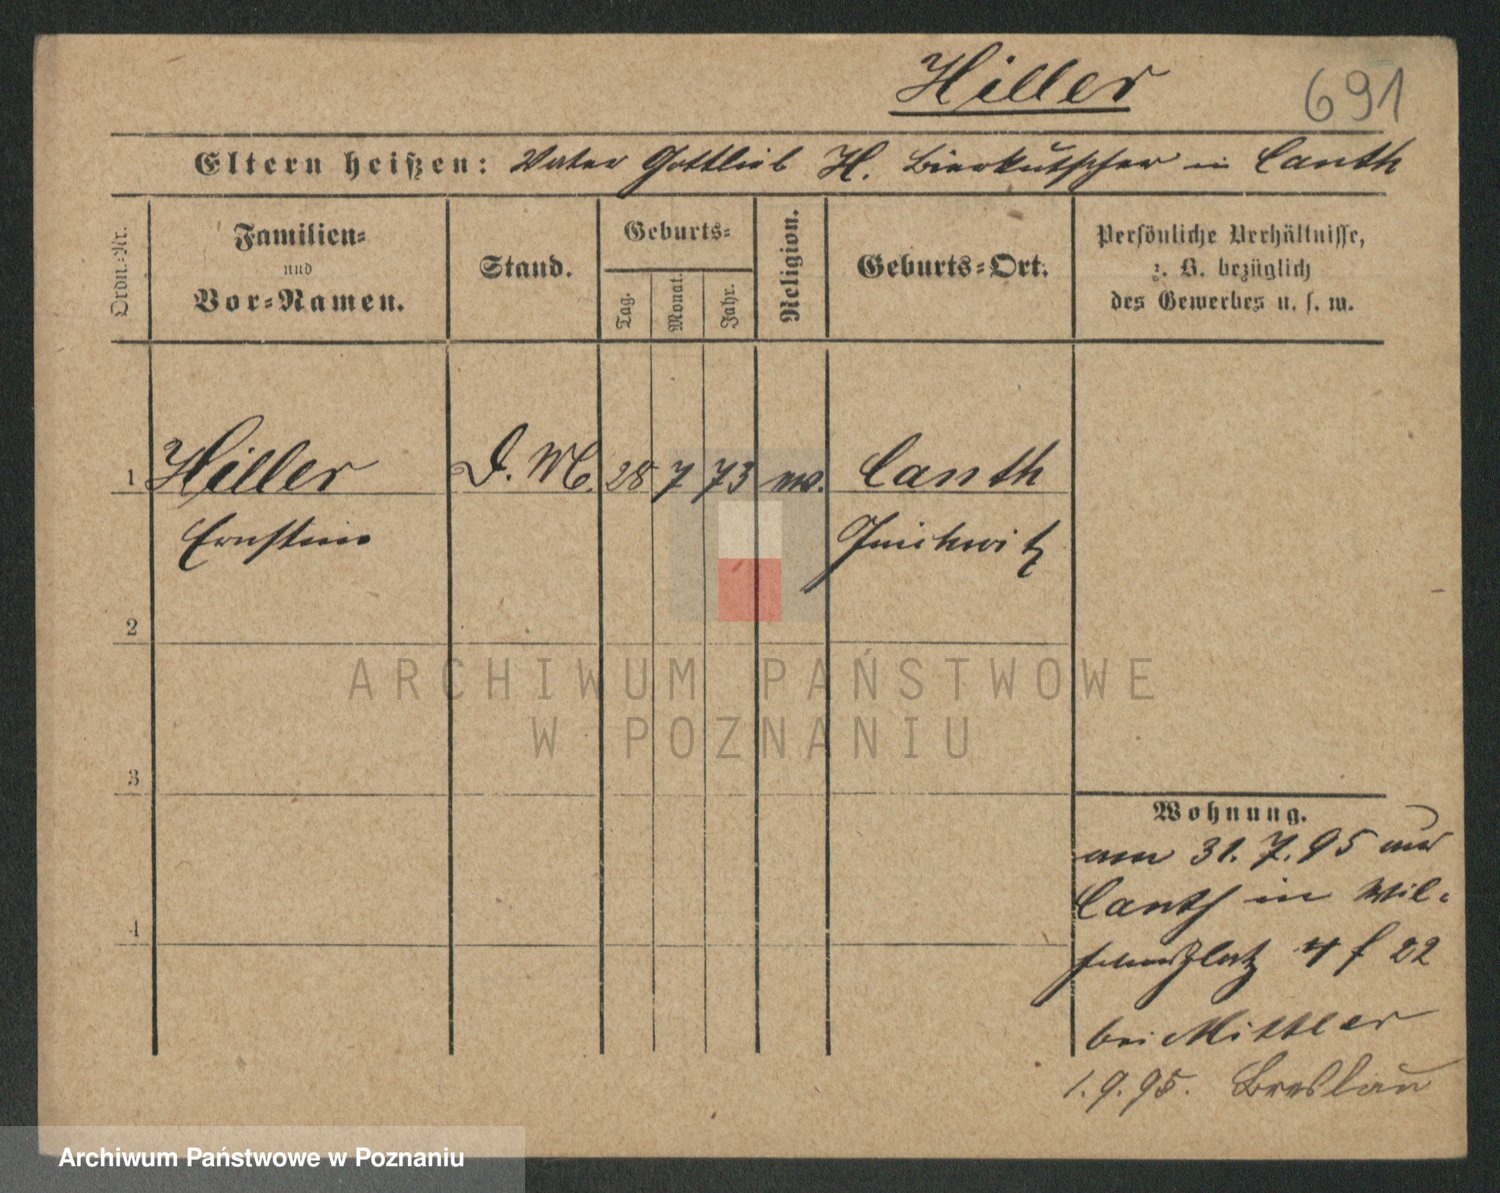 Hiller 691
Eltern heißen: Vater Gottlieb H. Bierkutscher in Canth
Ordn.-Nr.
Familien-
und
Vor-Namen.
Stand.
Geburts-
Tag.
Monat.
Jahr.
Religion.
Geburts-Ort.
Persönliche Verhältnisse,
z. B. bezüglich
des Gewerbes u. s. w.
1 Hiller D. M. 28 7 73 ev. Canth
Ernstine
2
3
4
Wohnung.
am 31. 7. 95 aus
Canth in Wil-
4 f 22
bei Mittler
1. 9. 95. Breslau
ARCHIWUM PAŃSTWOWE
W POZNANIU
Archiwum Państwowe w Poznaniu